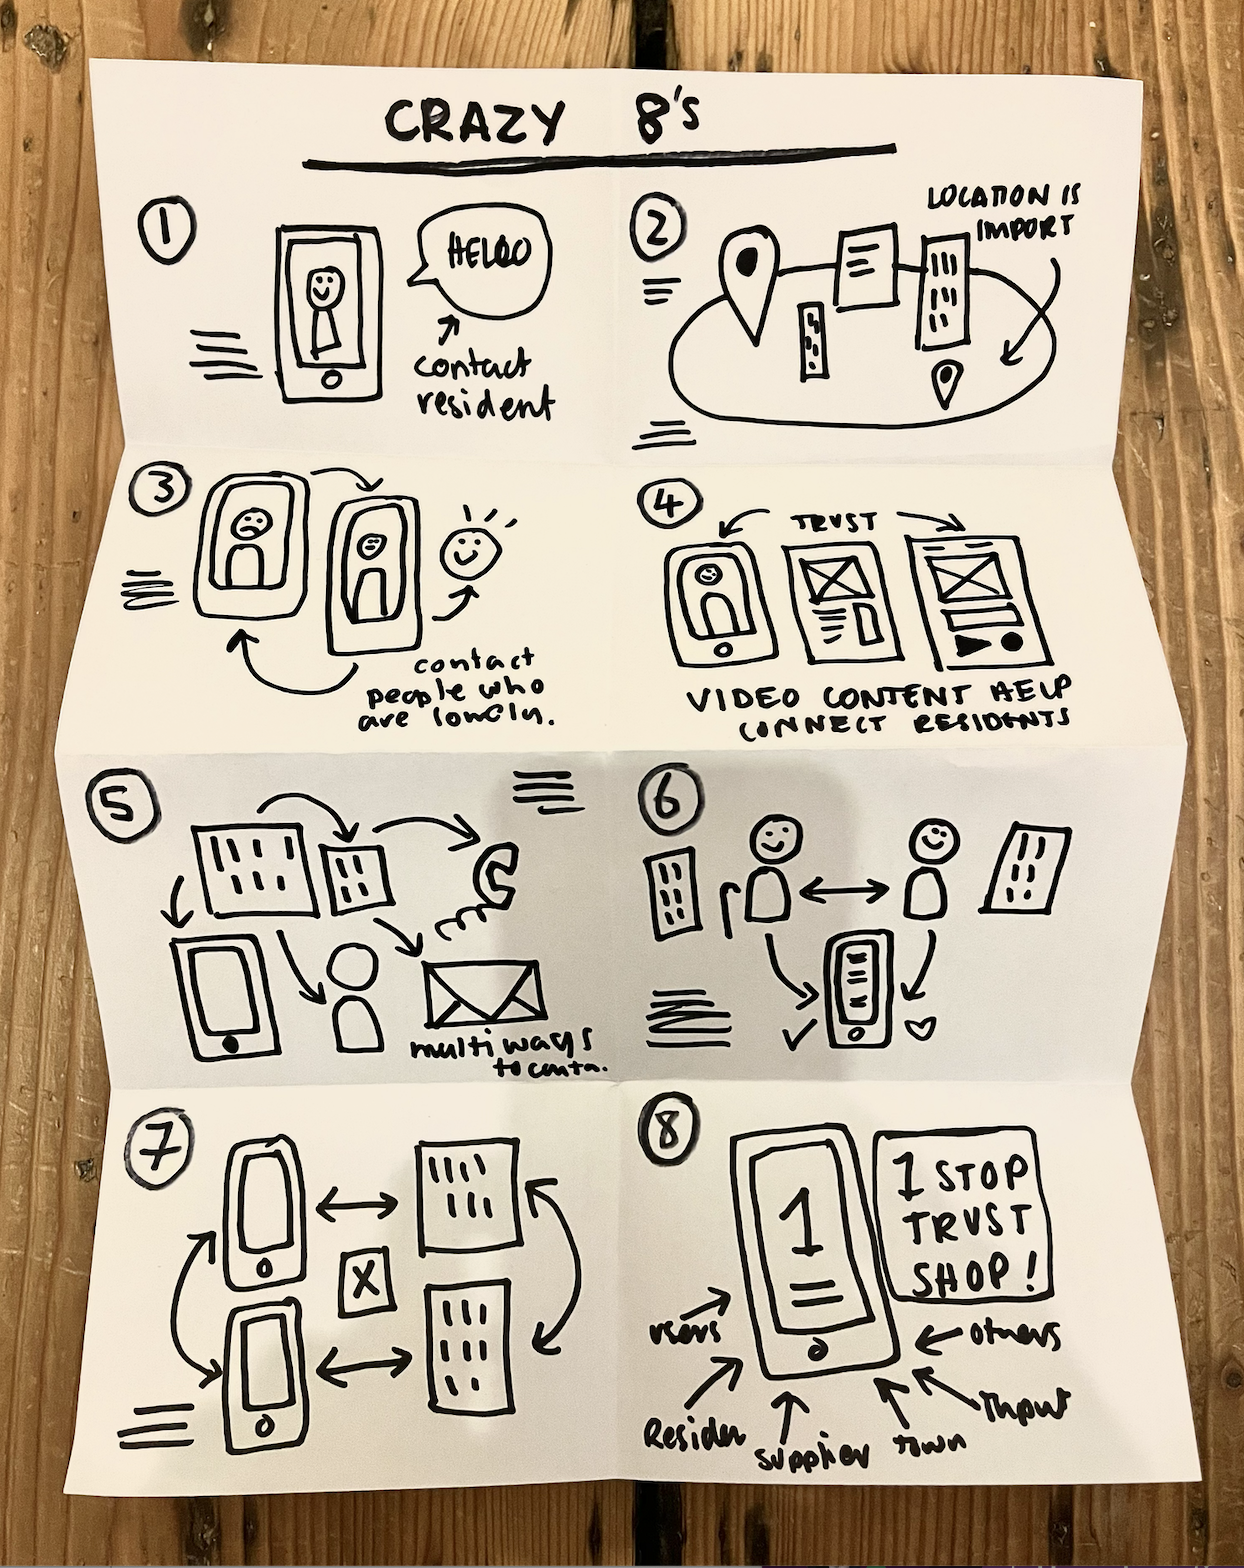 CRAZY 8's
1
HELLO
contact
resident
2
LOCATION IS
IMPORT
3
contact
people who
are lonely.
4
TRUST
VIDEO CONTENT HELP
CONNECT RESIDENTS
5
multi ways
to conta.
6
7
X
8
1
1 STOP
TRUST
SHOP!
users
others
Residen
supplier
town
Input